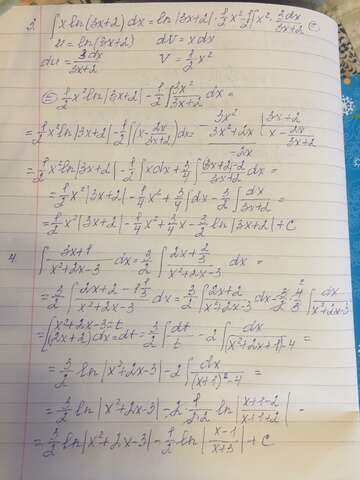 3. ∫ x ln(3x+2) dx = ln|3x+2| · 1/2 x² - 1/2 ∫ x² · 3dx/(3x+2) ⊜
u = ln(3x+2) dV = x dx
du = 3dx/(3x+2) V = 1/2 x²
⊜ 1/2 x² ln|3x+2| - 1/2 ∫ 3x²/(3x+2) dx =
= 1/2 x² ln|3x+2| - 1/2 ∫ (x - 2x/(3x+2)) dx = 3x² | 3x+2
3x²+2x | x - 2x/(3x+2)
-2x
= 1/2 x² ln|3x+2| - 1/2 ∫ x dx + 3/4 ∫ (3x+2)-2/(3x+2) dx =
= 1/2 x² |3x+2| - 1/4 x² + 3/4 ∫ dx - 3/2 ∫ dx/(3x+2) =
= 1/2 x² |3x+2| - 1/4 x² + 3/4 x - 3/2 ln|3x+2| + C
4. ∫ (3x+1)/(x²+2x-3) dx = 3/2 ∫ (2x + 2/3)/(x²+2x-3) dx =
= 3/2 ∫ (2x+2-1 1/3)/(x²+2x-3) dx = 3/2 ∫ (2x+2)/(x²+2x-3) dx - 3/2 · 4/3 ∫ dx/(x²+2x-3)
= [x²+2x-3=t
(2x+2)dx=dt] = 3/2 ∫ dt/t - 2 ∫ dx/((x²+2x+1)-4) =
= 3/2 ln|x²+2x-3| - 2 ∫ dx/((x+1)²-4) =
= 3/2 ln|x²+2x-3| - 2 · 1/(2·2) ln|(x+1-2)/(x+1+2)| =
= 3/2 ln|x²+2x-3| - 1/2 ln|(x-1)/(x+3)| + C